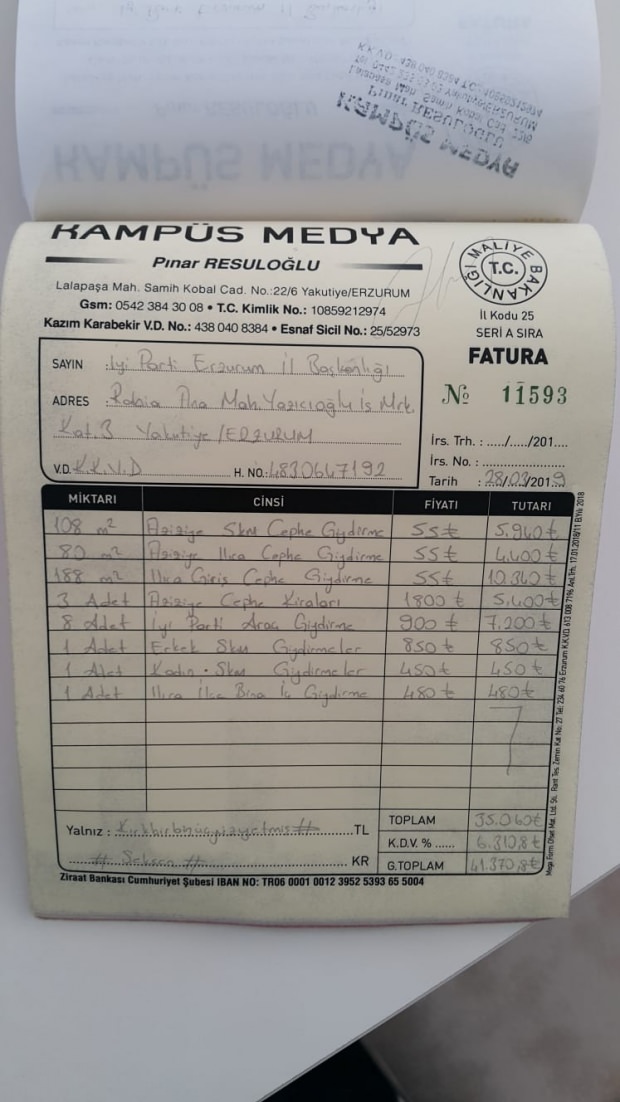 KAMPÜS MEDYA
Pınar RESULOĞLU
Lalapaşa Mah. Samih Kobal Cad. No.:22/6 Yakutiye/ERZURUM
Gsm: 0542 384 30 08 • T.C. Kimlik No.: 10859212974
Kazım Karabekir V.D. No.: 438 040 8384 • Esnaf Sicil No.: 25/52973
MALİYE BAKANLIĞI
T.C.
İl Kodu 25
SERİ A SIRA
FATURA
№ 11593
SAYIN : İyi Parti Erzurum İl Başkanlığı
ADRES : Rabia Ana Mah. Yazıcıoğlu İş Mrk.
Kat.3 Yakutiye/ERZURUM
V.D. K.K.V.D H. NO.: 4830647192
İrs. Trh. : ...../...../201....
İrs. No. : ......................
Tarih : 28/03/2019
MİKTARI CİNSİ FİYATI TUTARI
108 m² Aziziye Skm Cephe Giydirme 55 ₺ 5.940 ₺
80 m² Aziziye Ilıca Cephe Giydirme 55 ₺ 4.400 ₺
188 m² Ilıca Giriş Cephe Giydirme 55 ₺ 10.340 ₺
3 Adet Aziziye Cephe Kiraları 1800 ₺ 5.400 ₺
8 Adet İyi Parti Araç Giydirme 900 ₺ 7.200 ₺
1 Adet Erkek Skm Giydirmeler 850 ₺ 850 ₺
1 Adet Kadın Skm Giydirmeler 450 ₺ 450 ₺
1 Adet Ilıca İlçe Bina İç Giydirme 480 ₺ 480 ₺
TOPLAM 35.060 ₺
Yalnız : Kırkbirbinüçyüzyetmiş # TL
K.D.V. % ...... 6.310,8 ₺
# Seksen # KR
G.TOPLAM 41.370,8 ₺
Ziraat Bankası Cumhuriyet Şubesi IBAN NO: TR06 0001 0012 3952 5393 65 5004